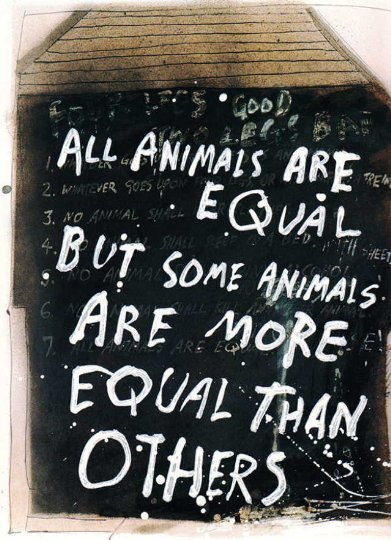 FOUR LEGS GOOD
TWO LEGS BAD
ALL ANIMALS ARE
EQUAL
BUT SOME ANIMALS
ARE MORE
EQUAL THAN
OTHERS
1.
2. WHATEVER GOES UPON
3. NO ANIMAL SHALL
4. SHALL SLEEP IN A BED WITH SHEETS
5. NO ANIMAL
6. NO ANIMAL SHALL KILL ANIMAL
7. ALL ANIMALS ARE EQUAL